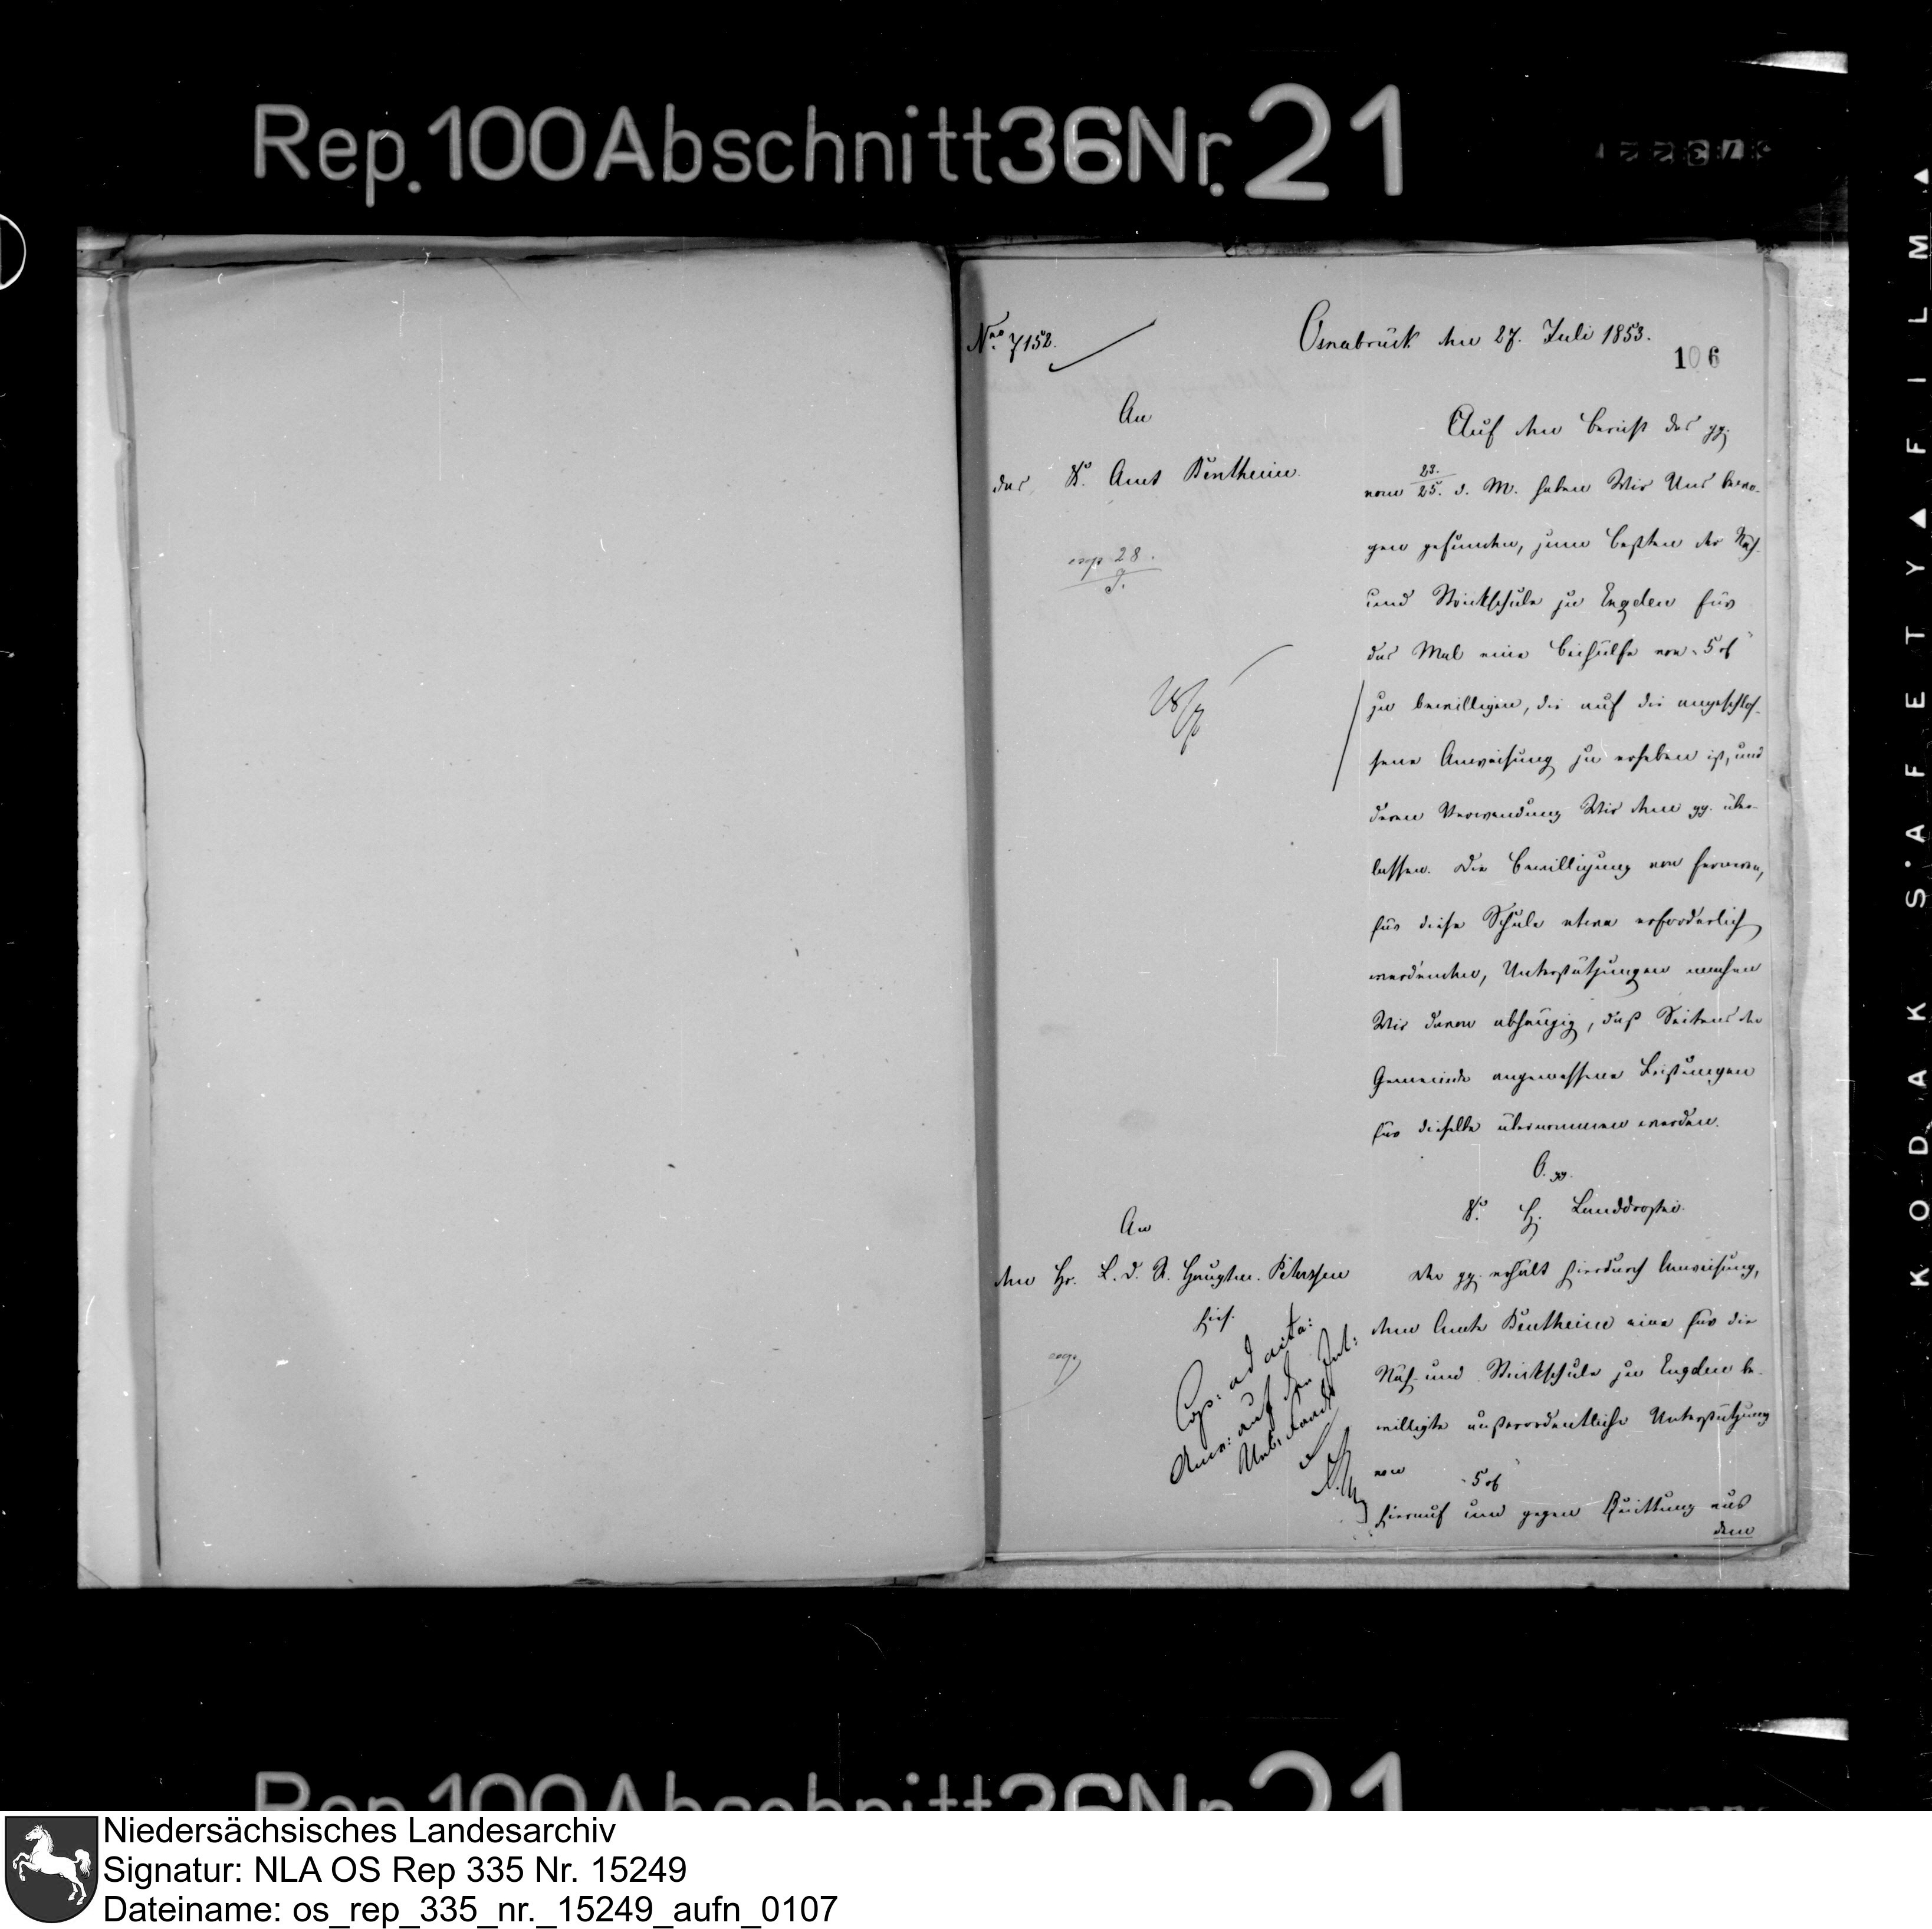 Rep. 100 Abschnitt 36 Nr. 21
Nro. 7152.
Osnabrück den 27. Juli 1853.
106
An
das K. Amt Bentheim.
exp 28.
J.
Auf den Bericht des gg.
vom 23./25. d. M. haben Wir Uns bewo-
gen gefunden, zum Besten der Näh-
und Strickschule zu Engden für
das Mal eine Beihülfe von "5 rℓ"
zu bewilligen, die auf die angeschlos-
sene Anweisung zu erheben ist, und
deren Verwendung Wir dem gg. über-
lassen. Die Bewilligung von ferneren,
für diese Schule etwa erforderlich
werdenden, Unterstützungen machen
Wir davon abhängig, daß Seitens der
Gemeinde angemessene Leistungen
für dieselbe übernommen werden.
O. gg.
K. H. Landdrostei.
An
den Hr. L. d. S. Hauptm. Petersen
hies.
exp
Cop: ad acta:
Anw: auf den Int:
Unt. Fonds
Der gg. erhält hierdurch Anweisung,
dem Amte Bentheim eine für die
Näh- und Strickschule zu Engden be-
willigte außerordentliche Unterstützung
von "5 rℓ"
hierauf und gegen Quittung aus
dem
KODAK SAFETY FILM
Rep. 100 Abschnitt 36 Nr. 21
Niedersächsisches Landesarchiv
Signatur: NLA OS Rep 335 Nr. 15249
Dateiname: os_rep_335_nr._15249_aufn_0107